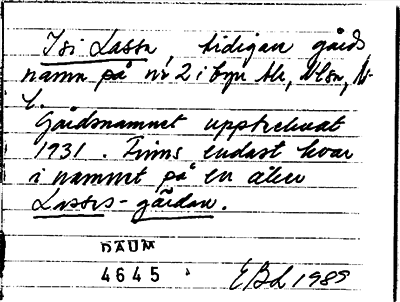 Isi Lassa, tidigare gårds
namn på nr 2 i byn Ale, Nlsn, N-
L.
Gårdsnamnet upptecknat
1931. Finns endast kvar
i namnet på en åker
Lasses-gärdan.
DAUM
4645
EBL 1989